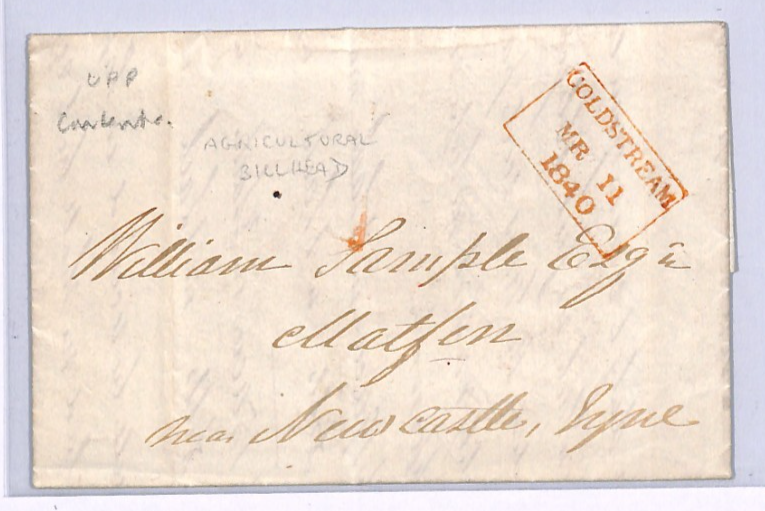 UPP
Contents.
AGRICULTURAL
BILLHEAD
COLDSTREAM
MR 11
1840
William Sample Esqr
Matfen
near Newcastle, Tyne